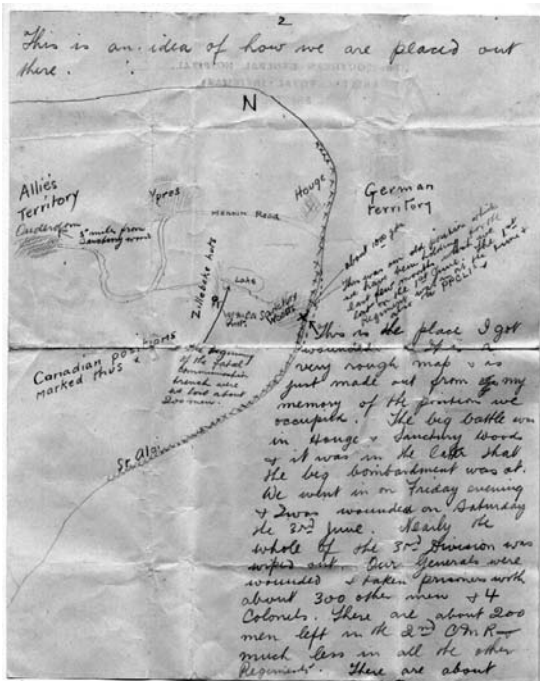 2
This is an idea of how we are placed out
there.
N
Allies
Territory
Ouderdom
5 mile from
Sanctuary woods
Ypres
Hooge
Menin Road
German
territory
about 100 yds
This was our old position which
we have been holding for the
last few months
lost on the 1st June; the 1st
Regiment was on the
also the PPCLI
Zillebeke huts
Lake
Sanctuary
Woods
Canadian positions
marked thus x
The beginning
of the fatal
communication
trench were
we lost about
200 men.
St. Aloi
This is the place I got
wounded. It is a
very rough map & is
just made out from my
memory of the position we
occupied. The big battle was
in Hooge & Sanctury Woods
& it was in the latter that
the big bombardment was at.
We went in on Friday evening
& I was wounded on Saturday
the 3rd June. Nearly the
whole of the 3rd Division was
wiped out. Our Generals were
wounded & taken prisoners with
about 300 other men & 4
Colonels. There are about 200
men left in the 2nd CMR
much less in all the other
Regiments. There are about